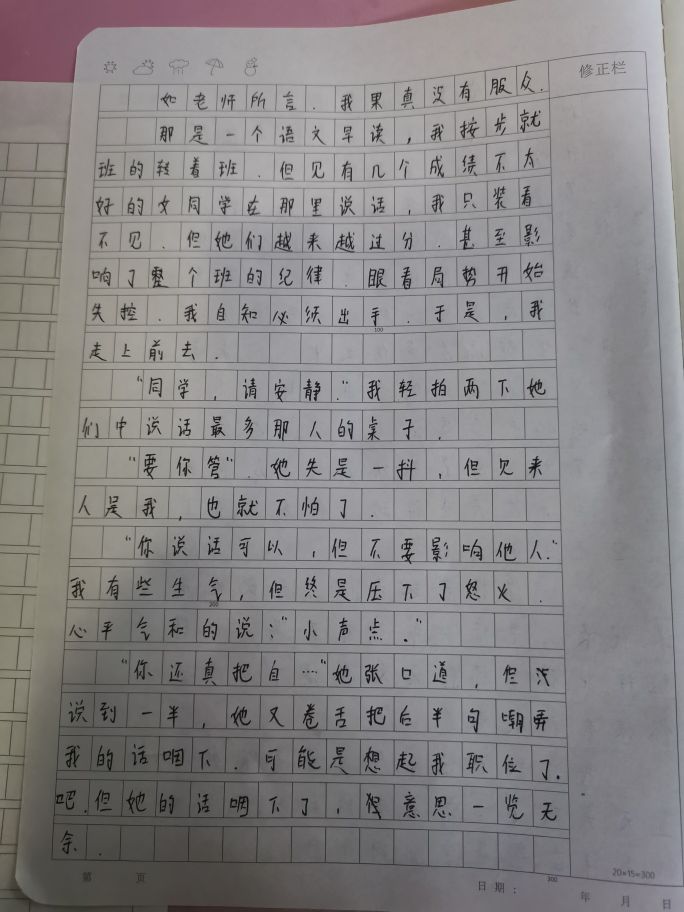 修正栏
如老师所言.我果真没有服众.
那是一个语文早读,我按步就
班的转着班.但见有几个成绩不太
好的女同学在那里说话,我只装着
不见.但她们越来越过分.甚至影
响了整个班的纪律.眼看局势开始
失控.我自知必须出手.于是,我
100
走上前去.
“同学,请安静.”我轻拍两下她
们中说话最多那人的桌子.
“要你管”.她失是一抖,但见来
人是我,也就不怕了.
“你说话可以,但不要影响他人.”
我有些生气,但终是压下了怒火.
200
心平气和的说:“小声点.”
“你还真把自……”她张口道,但没
说到一半,她又卷舌把后半句嘲弄
我的话咽下.可能是想起我职位了.
吧.但她的话咽下了,狠意思一览无
余.
300
20×15=300
第 页
日期: 年 月 日